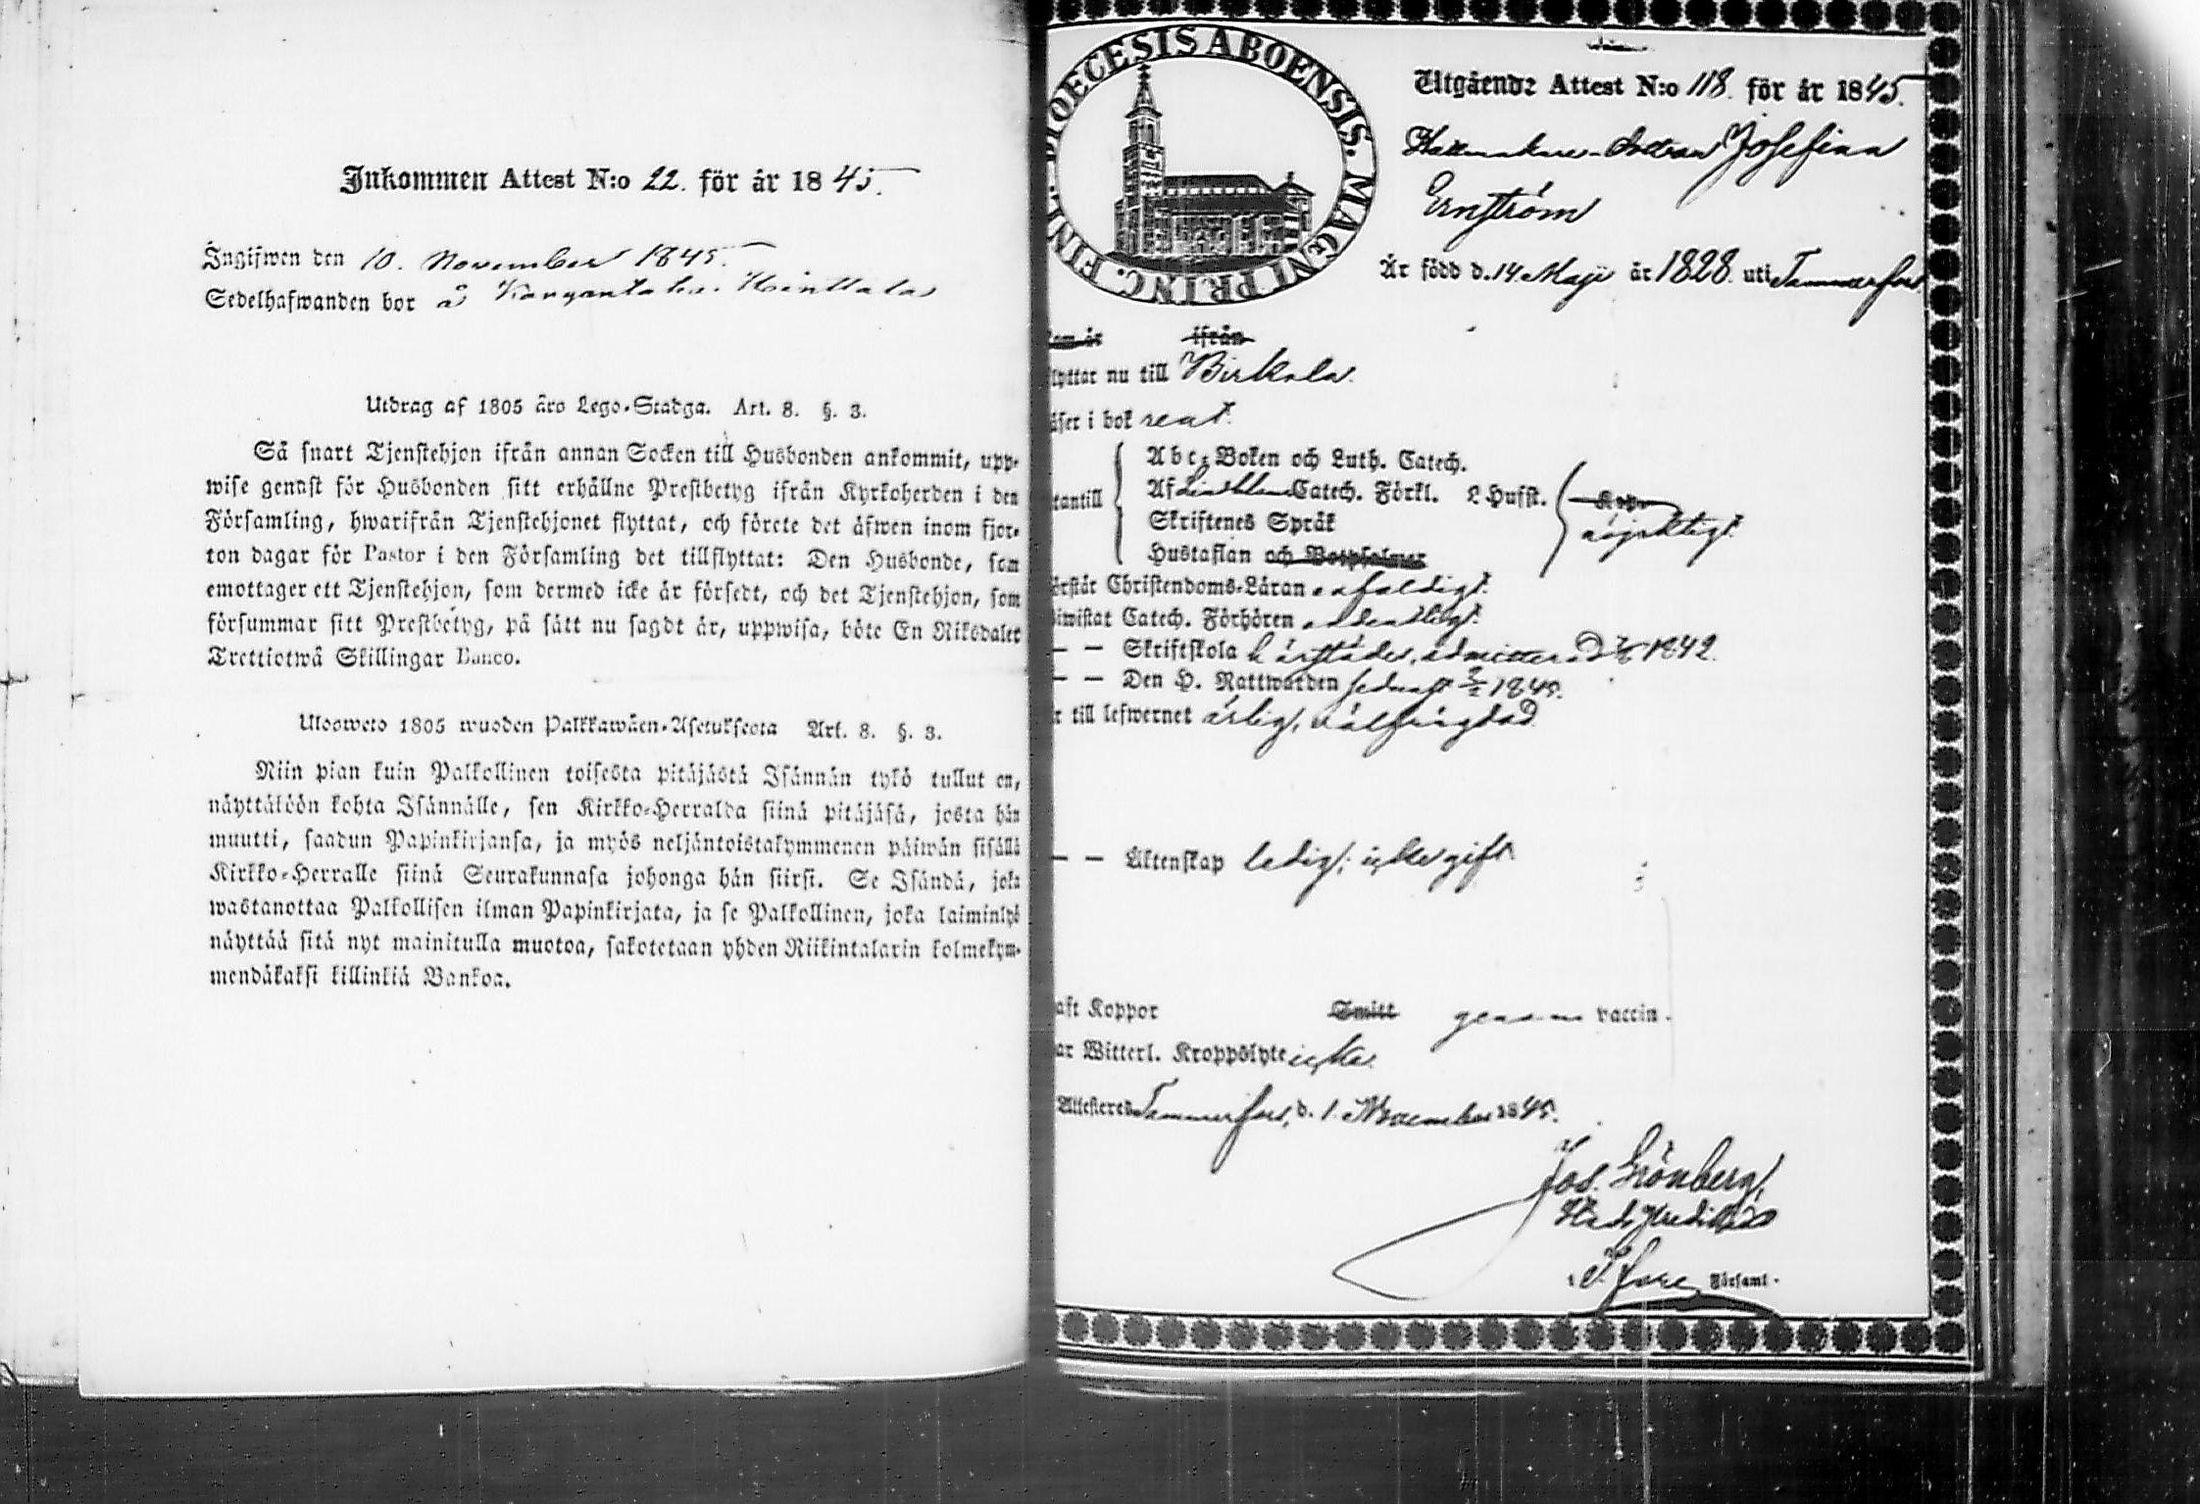 Inkommen Attest N:o 22. för år 1845.
Ingifwen den 10. November 1845.
Sedelhafwanden bor å Kangasala Hinttala
Utdrag af 1805 års Lego-Stadga. Art. 8. §. 3.
Så snart Tjenstehjon ifrån annan Socken till Husbonden ankommit, upp-
wise genast för Husbonden sitt erhållne Prestbetyg ifrån Kyrkoherden i den
Församling, hwarifrån Tjenstehjonet flyttat, och förete det äfwen inom fjor-
ton dagar för Pastor i den Församling det tillflyttat: Den Husbonde, som
emottager ett Tjenstehjon, som dermed icke är försedt, och det Tjenstehjon, som
försummar sitt Prestbetyg, på sätt nu sagdt är, uppwisa, böte En Riksdaler
Trettiotwå Skillingar Banco.
Ulosweto 1805 wuoden Palkkawäen-Asetuksesta Art. 8. §. 3.
Niin pian kuin Palkollinen toisesta pitäjästä Isännän tykö tullut on,
näyttäköön kohta Isännälle, sen Kirkko-Herralda siinä pitäjäsä, josta hän
muutti, saadun Papinkirjansa, ja myös neljäntoistakymmenen päiwän sisällä
Kirkko-Herralle siinä Seurakunnasa johonga hän siirsi. Se Isändä, joka
wastanottaa Palkollisen ilman Papinkirjata, ja se Palkollinen, joka laiminlyö
näyttää sitä nyt mainitulla muotoa, sakotetaan yhden Riikintalarin kolmekym-
mendäkaksi killinkiä Bankoa.
DIOECESIS ABOENSIS. MAGNI PRINC. FINL.
Utgående Attest N:o 118. för år 1845.
Josefina
Ernström
Är född d. 14 Maji år 1828. uti Tammerfors
kom år ifrån
lyttar nu till Birkala.
äser i bok rent.
Abc-Boken och Luth. Catech.
Af Lindbloms Catech. Förkl. L Hufst. Kop.
tantill Skriftenes Språk nöjaktigt.
Hustaflan och Botpsalmer
örstår Christendoms-Läran enfaldigt.
iwistat Catech. Förhören ordentligt.
— — Skriftskola härstädes, admitterad 1842.
— — Den H. Nattwarden sednast 1845.
r till lefwernet ärlig, wälfrägdad
— — Äktenskap ledig; icke gift
aft Koppor Smitt genom vaccin.
ar Witterl. Kroppslyte icke.
Attesteres Tammerfors, d. 1. November 1845.
Jos. Grönberg,
i T:fors Församl.